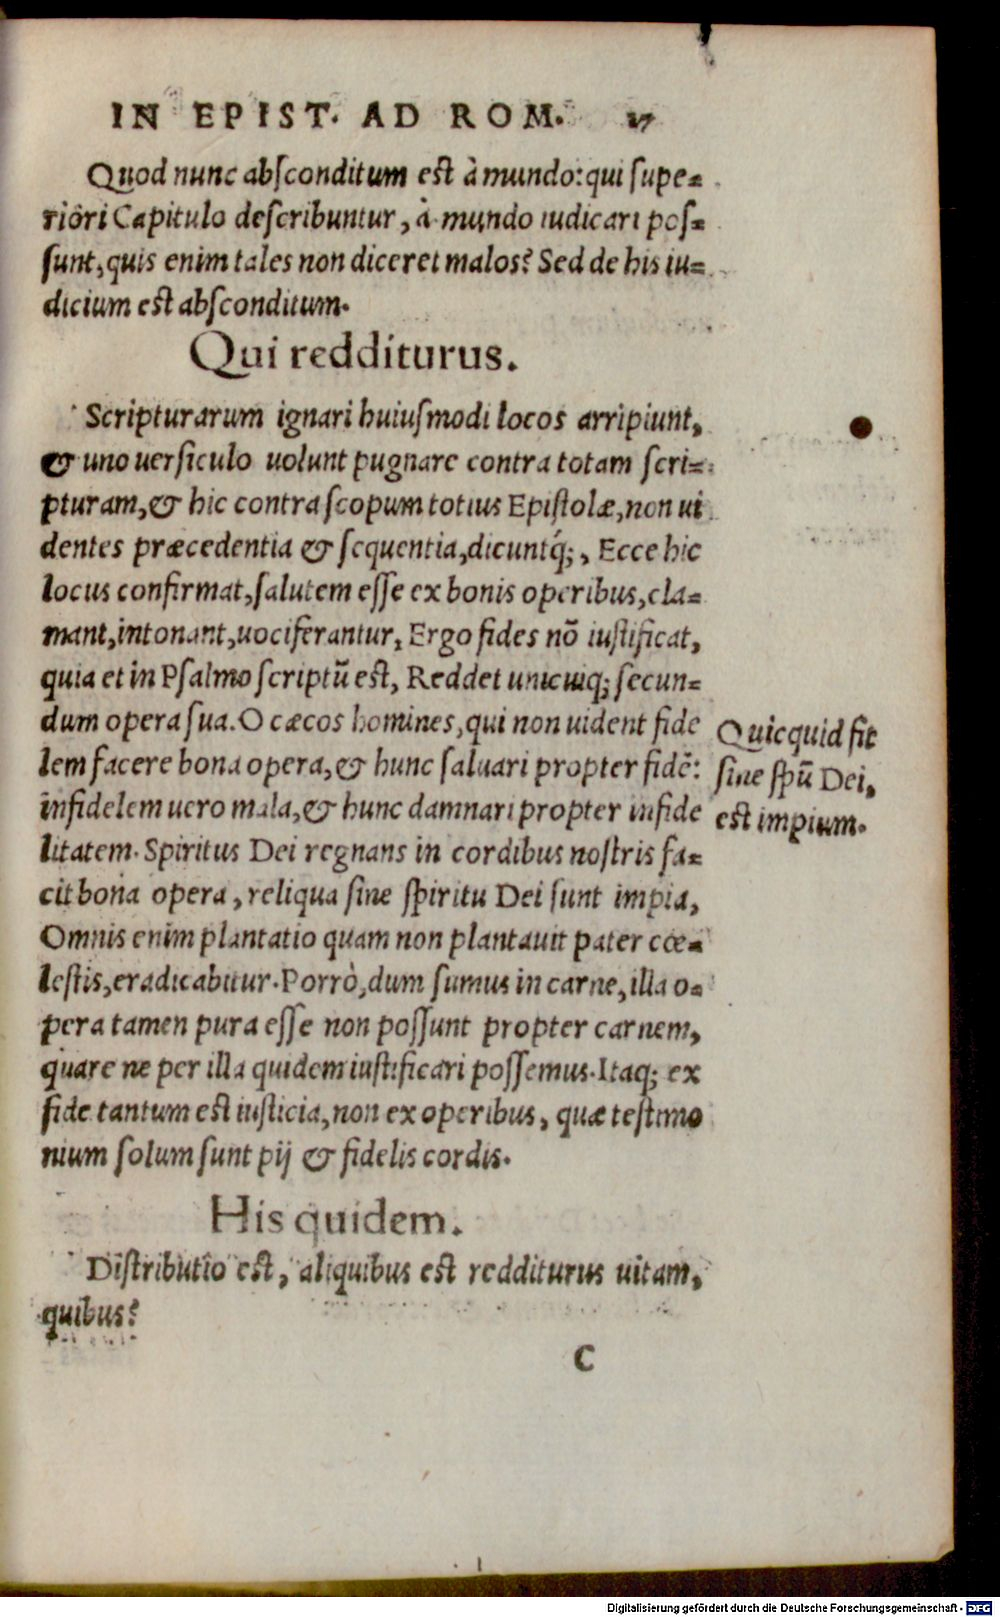 IN EPIST. AD ROM. 17
Quod nunc absconditum est à mundo: qui supe-
riori Capitulo describuntur, à mundo iudicari pos-
sunt, quis enim tales non diceret malos? Sed de his iu-
dicium est absconditum.
Qui redditurus.
Scripturarum ignari huiusmodi locos arripiunt,
& uno uersiculo uolunt pugnare contra totam scri-
pturam, & hic contra scopum totius Epistolæ, non ui
dentes præcedentia & sequentia, dicuntq́;, Ecce hic
locus confirmat, salutem esse ex bonis operibus, cla-
mant, intonant, uociferantur, Ergo fides nõ iustificat,
quia et in Psalmo scriptũ est, Reddet unicuiq; secun-
dum opera sua. O cæcos homines, qui non uident fide
lem facere bona opera, & hunc saluari propter fidẽ:
infidelem uero mala, & hunc damnari propter infide
litatem. Spiritus Dei regnans in cordibus nostris fa-
cit bona opera, reliqua sine spiritu Dei sunt impia,
Omnis enim plantatio quam non plantauit pater cœ-
lestis, eradicabitur. Porrò, dum sumus in carne, illa o-
pera tamen pura esse non possunt propter carnem,
quare ne per illa quidem iustificari possemus. Itaq; ex
fide tantum est iusticia, non ex operibus, quæ testimo
nium solum sunt pij & fidelis cordis.
Quicquid fit
sine spũ Dei,
est impium.
His quidem.
Distributio est, aliquibus est redditurus uitam,
quibus?
C
Digitalisierung gefördert durch die Deutsche Forschungsgemeinschaft - DFG